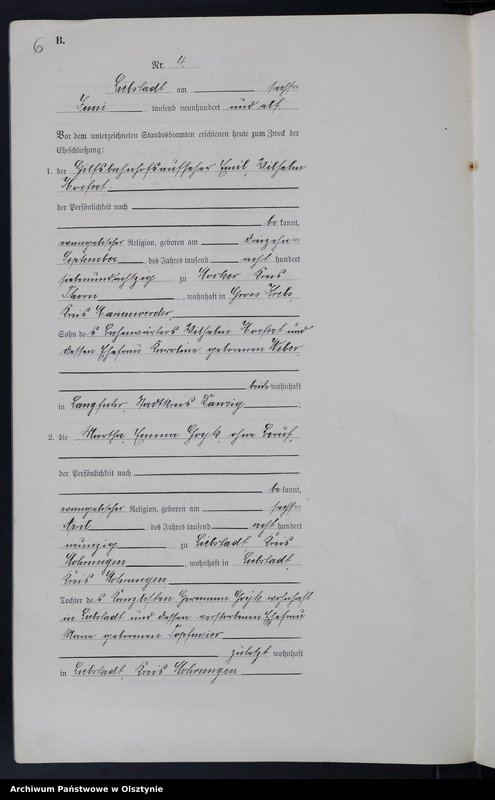 6
B.
Nr. 4.
Liebstadt am sechsten
Juni tausend neunhundert und elf
Vor dem unterzeichneten Standesbeamten erschienen heute zum Zweck der
Eheschließung:
1. der Hilfsbahnhofsaufseher Emil, Wilhelm
der Persönlichkeit nach
be kannt,
evangelischer Religion, geboren am dreizehnten
September des Jahres tausend acht hundert
siebenundachtzig zu Mocker Kreis
Thorn, wohnhaft in Gross Krebs
Kreis Marienwerder,
Sohn des Bahnwärters Wilhelm und
dessen Ehefrau Karoline geborenen Weber,
beide wohnhaft
in Langfuhr, Stadtkreis Danzig;
2. die Martha, Emma ohne Beruf,
der Persönlichkeit nach
be kannt,
evangelischer Religion, geboren am sechsten
April des Jahres tausend acht hundert
neunzig zu Liebstadt Kreis
Mohrungen, wohnhaft in Liebstadt,
Kreis Mohrungen
Tochter des Kanzlisten Hermann wohnhaft
in Liebstadt und dessen verstorbenen Ehefrau
geborenen
zuletzt wohnhaft
in Liebstadt, Kreis Mohrungen.
Archiwum Państwowe w Olsztynie